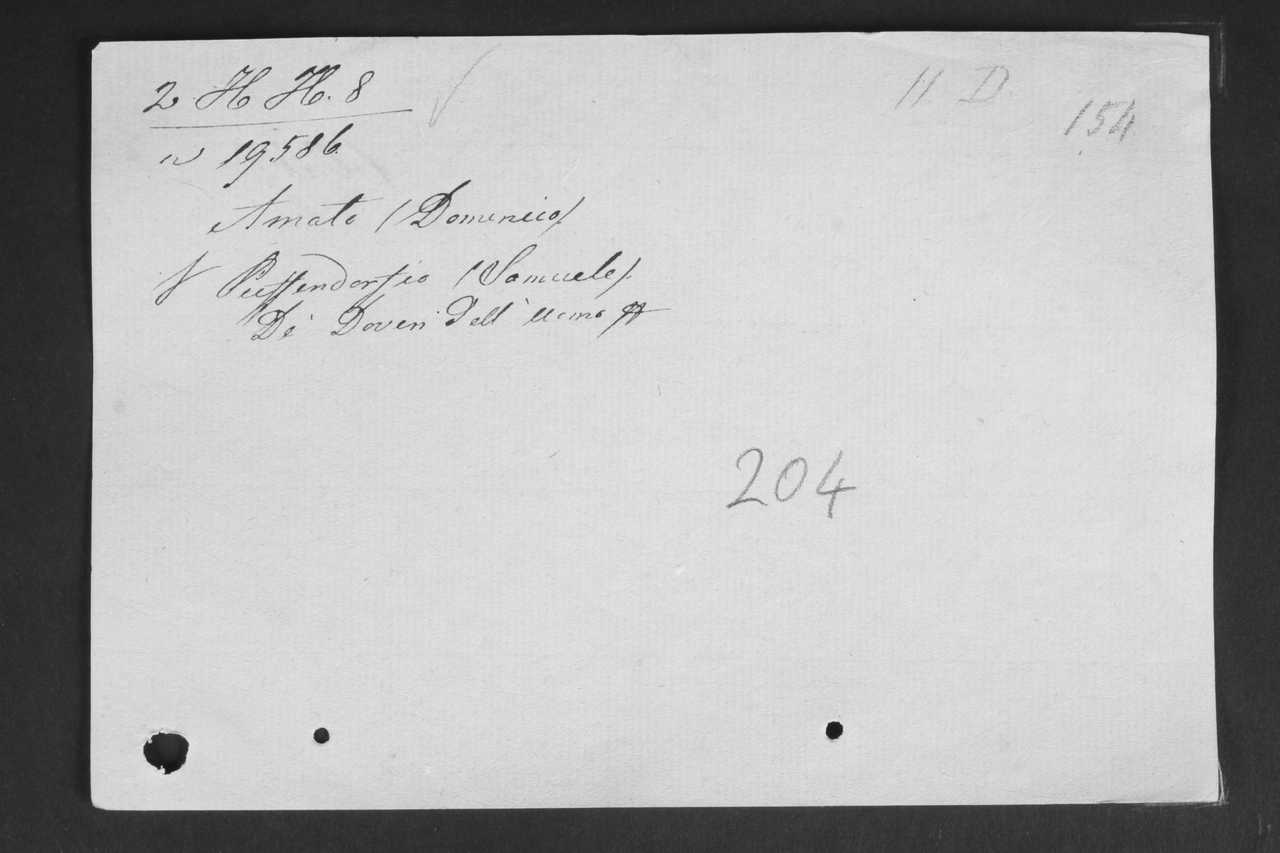 2. H H. 8
11 D.
154
n 19586.
Amato (Domenico)
V Puffendorfio (Samuele).
De' Doveri dell' uomo
204